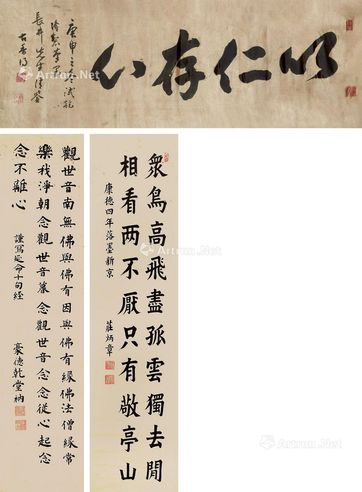 以仁存心
庚申之冬試乾
隆製筆
長井先生清鑒
古香
衆鳥高飛盡孤雲獨去閒
相看两不厭只有敬亭山
康德四年落墨新京　莊炳章
觀世音南無佛與佛有因與佛有緣佛法僧緣常
樂我淨朝念觀世音暮念觀世音念念從心起念
念不離心　謹寫延命十句經　豪德乾堂衲
Artron.Net